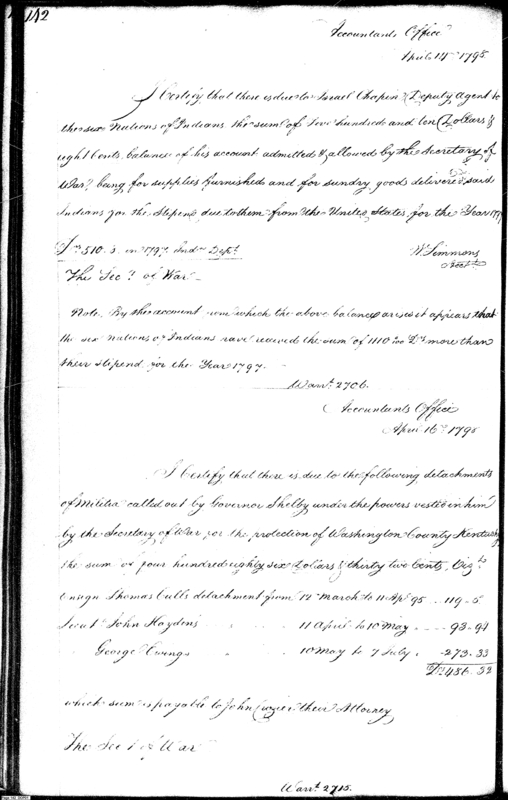 142
Accountants Office
April 14th 1798
I Certify that there is due to Israel Chapin Deputy Agent to
the six Nations of Indians the sum of five hundred and ten Dollars &
eight Cents, balance of his account admitted & allowed by the Secretary of
War, being for supplies furnished and for sundry goods delivered said
Indians for the Stipend due to them from the United States, for the Year 1797
510. 8. in 1797 Ind. Dept.
W. Simmons
Acct.
The Secy. of War
Note. By this account from which the above balance arises it appears that
the six nations of Indians have received the sum of Drs more than
their Stipend for the Year 1797.
Warrt. 2706.
Accountants Office
April 16th 1798
I Certify that there is due to the following detachments
of Militia called out by Governor Shelby under the powers vested in him
by the Secretary of War, for the protection of Washington County Kentucky
the sum of four hundred eighty six Dollars & thirty two Cents, Viz
Ensign Thomas detachment from 12 March to 11 Apl 95 .. 119 - 5
Lieut John Haydens " 11 April to 10 May .... 93 - 94
George Ewings " 10 May to 7 July . 273. 33
Ds 486. 32
which sum is payable to John Crozier their Attorney
The Secy. of War
Warrt. 2715.